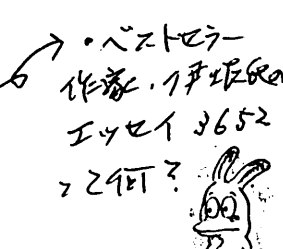 ・ベストセラー
作家・伊坂氏の
エッセイ 3652
って何?